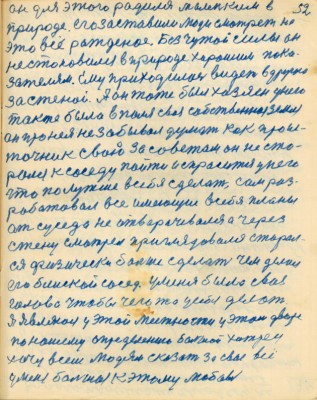 он для этого радился маленьким в 52
природе, его заставили люди смотреть на
это всё рожденое. Без чутой силы он
не становился в природе хорошим пока-
зателям. Ему приходилось видеть в друго
за стеной. А он тоже был хозяен у него
також была в поля своя собственная земля
он про нея не забывал думать как проис
точник свою За советом он не сто-
рался к соседу пойти и спросить у него
что получше в себя сделать, сам раз-
работовал все имеющие в себя планы
от суседа не отварачивался а через
стену смотрел приглядовался сторал-
ся физически больше сделать чем думал
его близкой сосед. У меня было своя
голова чтобы чего то у себя делать.
Я являюся у этой местности у этом дворе
по нашему определению
хочу всем людям сказать за своё всё
у меня к этому любовь